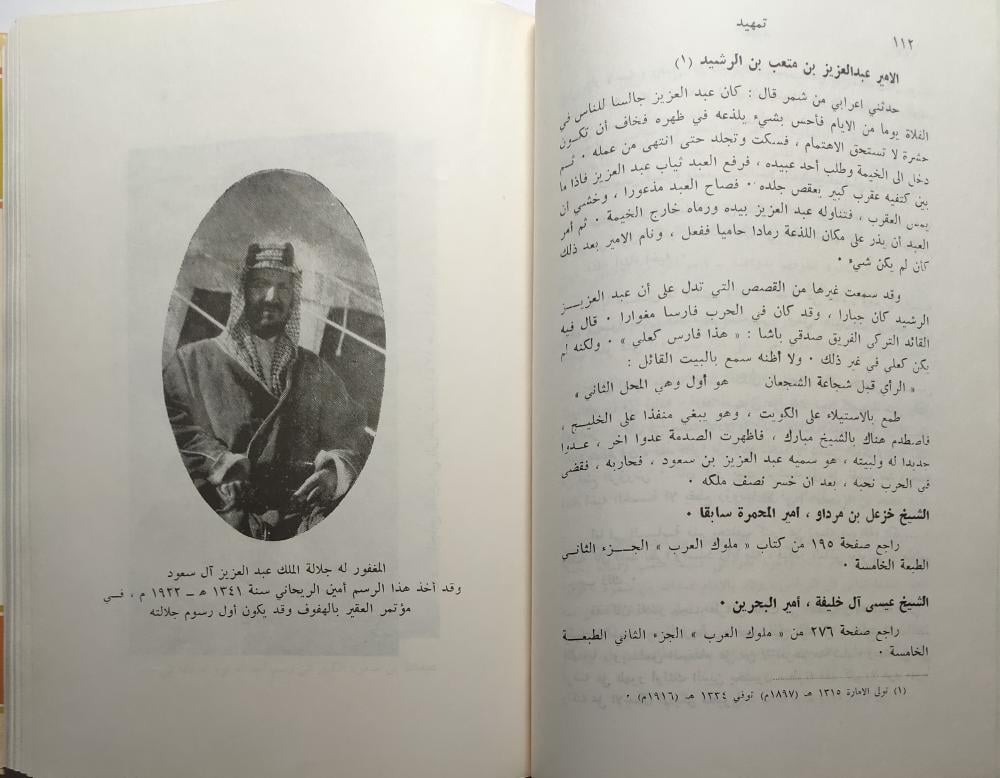 تمهيد
١١٢
الامير عبدالعزيز بن متعب بن الرشيد (١)
حدثني اعرابي من شمر قال : كان عبد العزيز جالسا للناس في
الفلاة يوما من الايام فأحس بشيء يلذعه في ظهره فخاف أن تكون
حشرة لا تستحق الاهتمام ، فسكت وتجلد حتى انتهى من عمله ٠ ثم
دخل الى الخيمة وطلب أحد عبيده ، فرفع العبد ثياب عبد العزيز فاذا ما
بين كتفيه عقرب كبير يعقص جلده ٠ فصاح العبد مذعورا ، وخشي ان
يمس العقرب ، فتناوله عبد العزيز بيده ورماه خارج الخيمة ٠ ثم أمر
العبد أن يذر على مكان اللذعة رمادا حاميا ففعل ، ونام الامير بعد ذلك
كأن لم يكن شيء ٠
وقد سمعت غيرها من القصص التي تدل على أن عبد العزيــز
الرشيد كان جبارا ، وقد كان في الحرب فارسا مغوارا ٠ قال فيه
القائد التركي الفريق صدقي باشا : « هذا فارس كعلي » ٠ ولكنه لم
يكن كعلي في غير ذلك ٠ ولا أظنه سمع بالبيت القائل :
« الرأي قبل شجاعة الشجعان هو أول وهي المحل الثاني »
طمع بالاستيلاء على الكويت ، وهو يبغي منفذا على الخليــج ،
فاصطدم هناك بالشيخ مبارك ، فاظهرت الصدمة عدوا اخر ، عــدوا
جديدا له ولبيته ، هو سميه عبد العزيز بن سعود ، فحاربه ، فقضى
في الحرب نحبه ، بعد ان خسر نصف ملكه ٠
الشيخ خزعل بن مرداو ، أمير المحمرة سابقا ٠
راجع صفحة ١٩٥ من كتاب « ملوك العرب » الجــزء الثاني
الطبعة الخامسة ٠
الشيخ عيسى آل خليفة ، أمير البحرين ٠
راجع صفحة ٢٧٦ من « ملوك العرب » الجزء الثاني الطبعــة
الخامسة ٠
(١) تولى الامارة ١٣١٥ هـ (١٨٩٧م) توفي ١٣٣٤ هـ (١٩١٦م) ٠
المغفور له جلالة الملك عبد العزيز آل سعود
وقد أخذ هذا الرسم أمين الريحاني سنة ١٣٤١ هـ – ١٩٢٢ م ، فــي
مؤتمر العقير بالهفوف وقد يكون أول رسوم جلالته